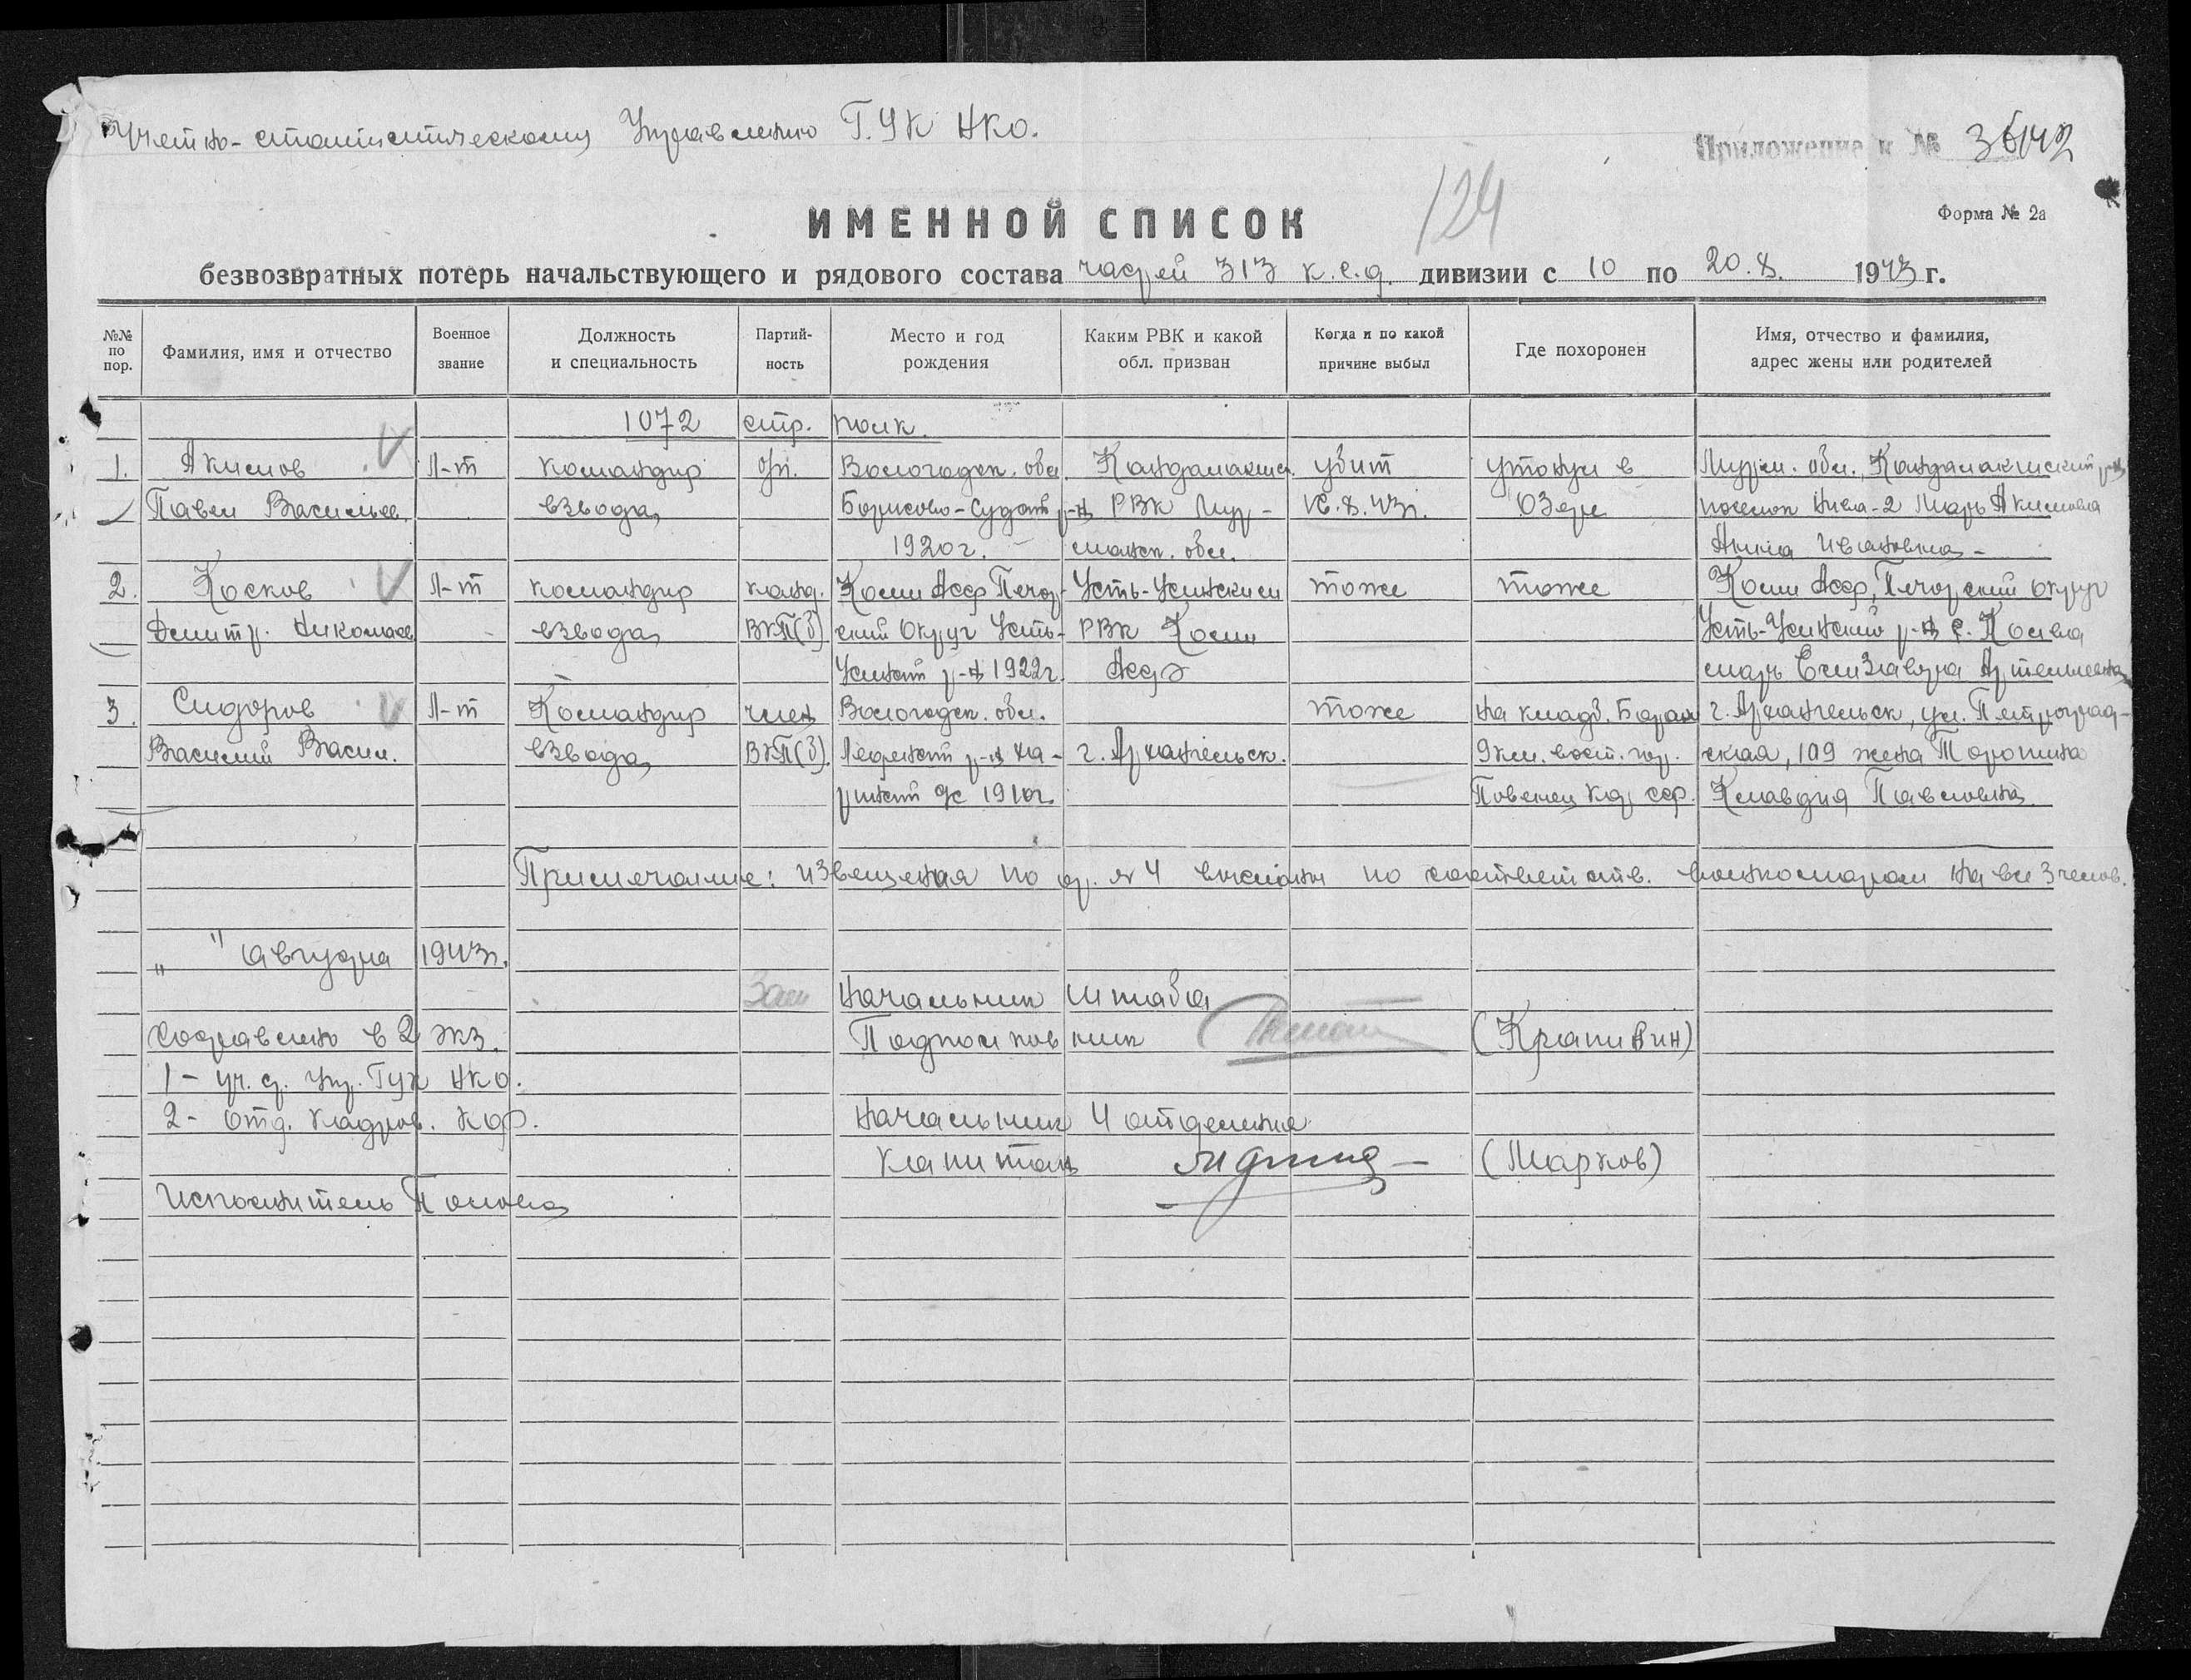 Учетно-статистическому Управлению Г.У.К НКО.
Приложение к №
124
ИМЕННОЙ СПИСОК
Форма № 2а
безвозвратных потерь начальствующего и рядового состава частей 313 к.с.д. дивизии с 10 по 20.8. 1943 г.
№№ по пор. Фамилия, имя и отчество Военное звание Должность и специальность Партийность Место и год рождения Каким РВК и какой обл. призван Когда и по какой причине выбыл Где похоронен Имя, отчество и фамилия, адрес жены или родителей
1072 стр. полк.
1. Акимов Л-т командир б/п. Вологодск. обл. Кандалакшск. убит утонул в Мурм. обл., Кандалакшский р-н
Павел Васильев. взвода Борисово-Судск р-н РВК Мур- 16.8.43г. Озере поселок Нива-2 Мать Акимова
1920г. манск. обл. Анна Ивановна
2. Косков Л-т командир канд. Коми Асср Печор- Усть-Усинским тоже тоже Коми Асср, Печорский округ
Дмитр. Николаев взвода ВКП(б) ский Округ Усть- РВК Коми Усть-Усинский р-н с. Колва
Усинск р-н 1922г. Асср мать Елизавета Артемьевна
3. Сидоров Л-т Командир член Вологодск. обл. тоже на кладб. г. Архангельск, ул. Петроград-
Василий Васил. взвода ВКП(б). р-н г. Архангельск. 9 км. вост. гор. ская, 109 жена Торопина
с/с 1910г. Повенец Кар сср. Клавдия Павловна
Примечание: извещения по ф. № 4 высланы по соответств. военкоматам на все 3 челов.
„ " августа 1943г.
Зам Начальник Штаба
Составлено в 2 экз. Подполковник (Крапивин)
1 - уч. с. упр. Гук НКО.
2 - отд. кадров. Кф. Начальник 4 отделения
Капитан (Марков)
Исполнитель